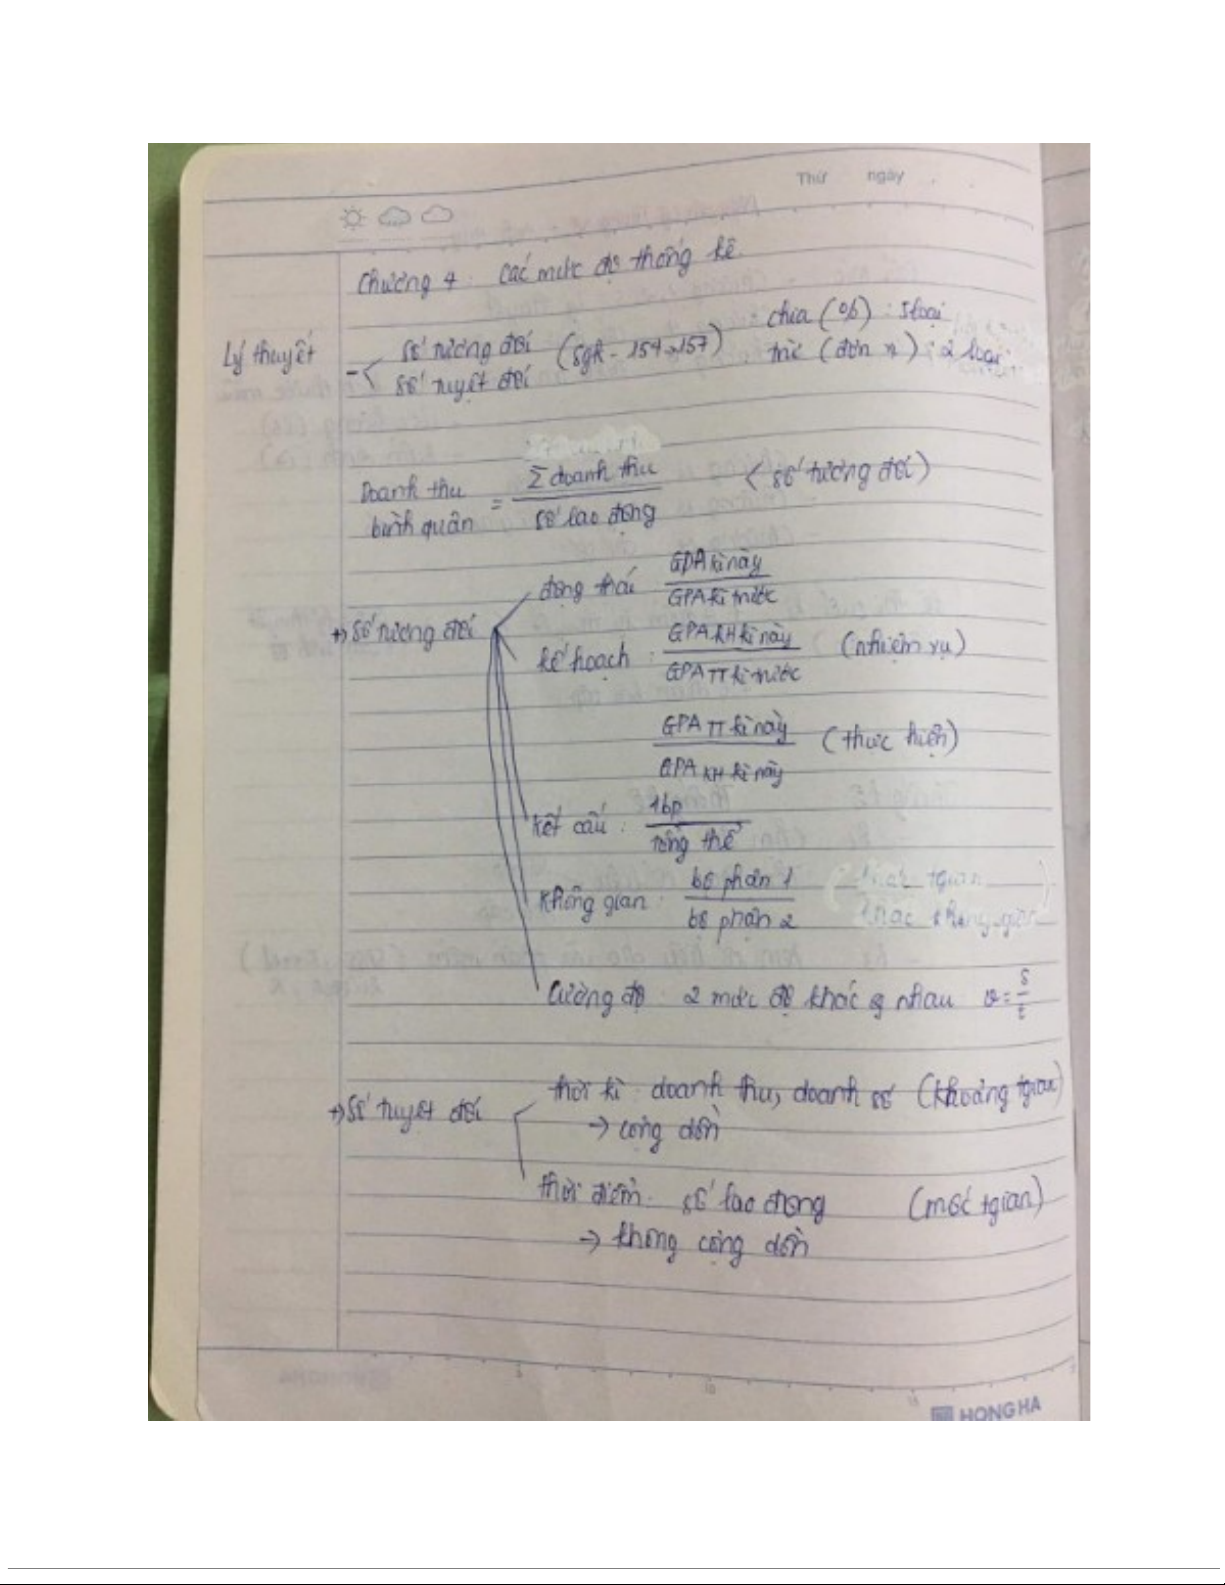 Thứ ngày
Chương 4 : Các mức độ thống kê
Lý thuyết
- < số tương đối (sgk - 154→157) chia (%) : 5 loại
số tuyệt đối trừ (đơn vị) : 2 loại
Doanh thu bình quân = Σ doanh thu / số lao động (số tương đối)
+) Số tương đối
động thái GPA kì này / GPA kì trước
kế hoạch : GPA KH kì này / GPA TT kì trước (nhiệm vụ)
GPA TT kì này / GPA KH kì này (thực hiện)
kết cấu : 1bp / tổng thể
không gian : bộ phận 1 / bộ phận 2
Cường độ : 2 mức độ khác nhau v = s/t
+) Số tuyệt đối
thời kì : doanh thu, doanh số (khoảng tgian)
→ cộng dồn
thời điểm : số lao động (mốc tgian)
→ không cộng dồn
HONG HA